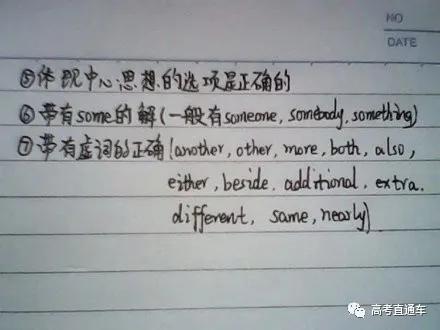 NO
DATE
⑤体现中心思想的选项是正确的
⑥带有some的解(一般有someone, somebody, something)
⑦带有虚词的正确(another, other, more, both, also,
either, beside, additional, extra.
different, same, nearly)
高考直通车